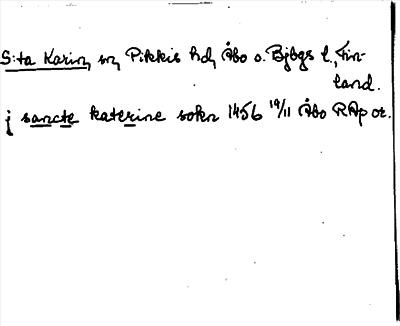 S:ta Karin, sn, Pikkis hd, Åbo o. Bjbgs l., Fin-
land.
j sancte katerine sokn 1456 19/11 Åbo RAp or.